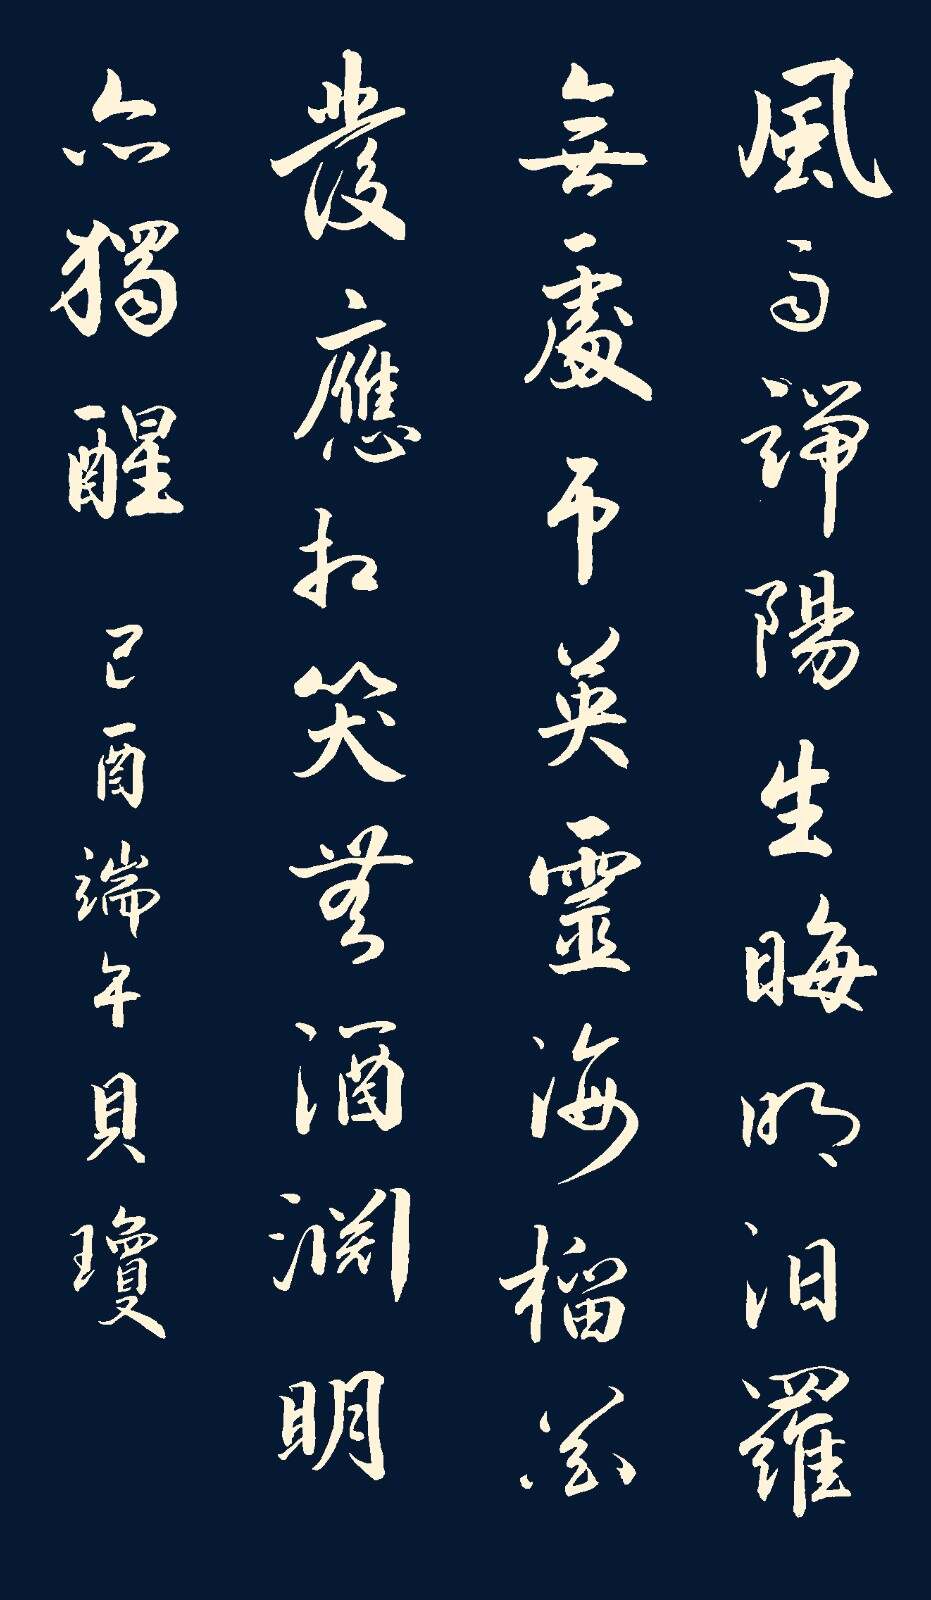 風雨端陽生晦明汨羅
無處弔英靈海榴花
發應相笑無酒淵明
亦獨醒 己酉端午貝瓊